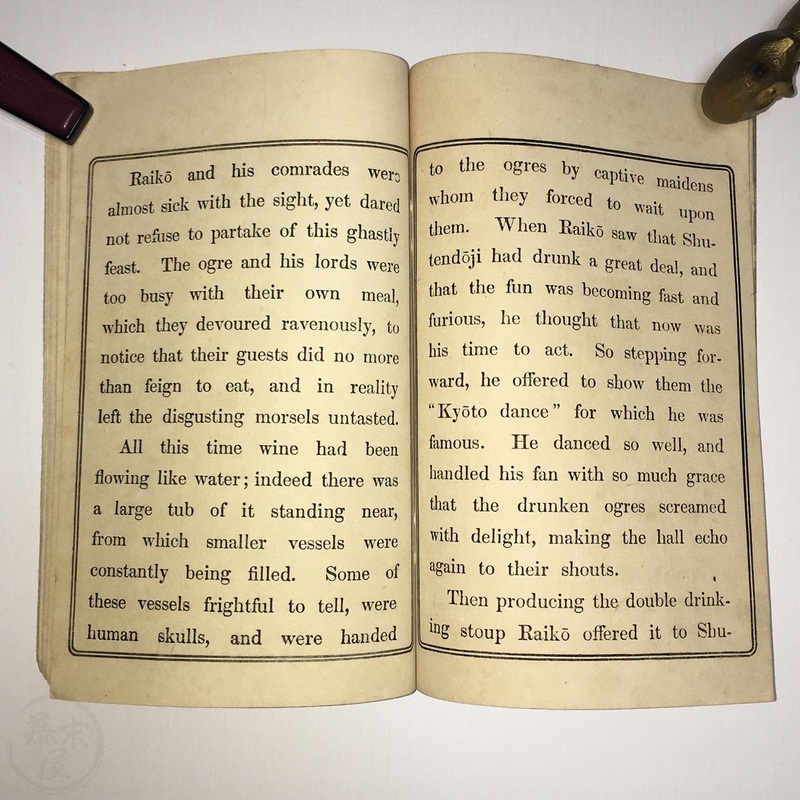 Raikō and his comrades were
almost sick with the sight, yet dared
not refuse to partake of this ghastly
feast. The ogre and his lords were
too busy with their own meal,
which they devoured ravenously, to
notice that their guests did no more
than feign to eat, and in reality
left the disgusting morsels untasted.
All this time wine had been
flowing like water; indeed there was
a large tub of it standing near,
from which smaller vessels were
constantly being filled. Some of
these vessels frightful to tell, were
human skulls, and were handed
to the ogres by captive maidens
whom they forced to wait upon
them. When Raikō saw that Shu-
tendōji had drunk a great deal, and
that the fun was becoming fast and
furious, he thought that now was
his time to act. So stepping for-
ward, he offered to show them the
"Kyōto dance" for which he was
famous. He danced so well, and
handled his fan with so much grace
that the drunken ogres screamed
with delight, making the hall echo
again to their shouts.
Then producing the double drink-
ing stoup Raikō offered it to Shu-